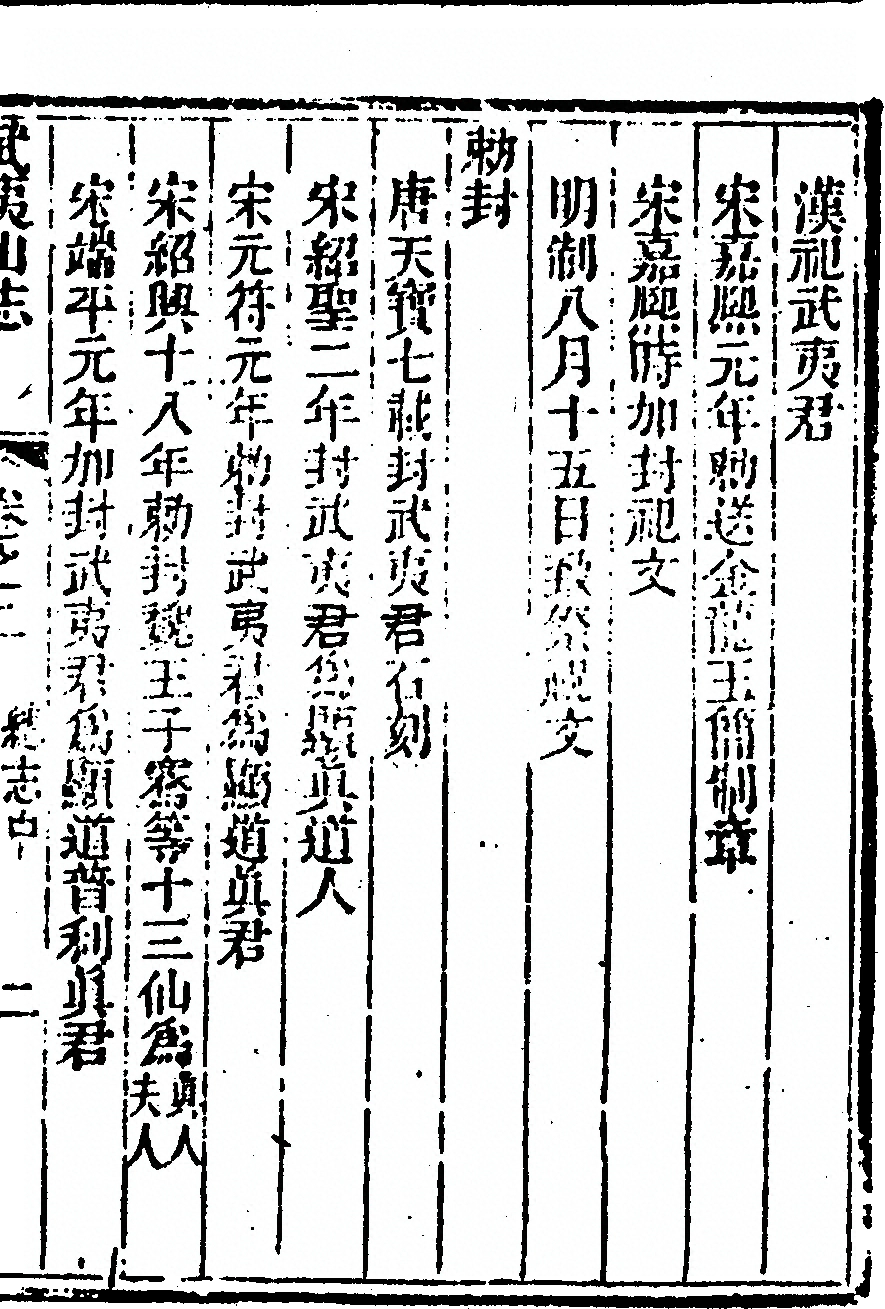 漢祀武夷君
宋嘉熙元年勅送金龍玉簡制章
宋嘉熙時加封祀文
明制八月十五日致祭祝文
勅封
唐天寶七載封武夷君石刻
宋紹聖二年封武夷君為顯眞道人
宋元符元年勅封武夷君為顯道眞君
宋紹興十八年勅封魏王子騫等十三仙為眞人夫人
宋端平元年加封武夷君為顯道普利眞君
武夷山志 卷之二 總志中 二